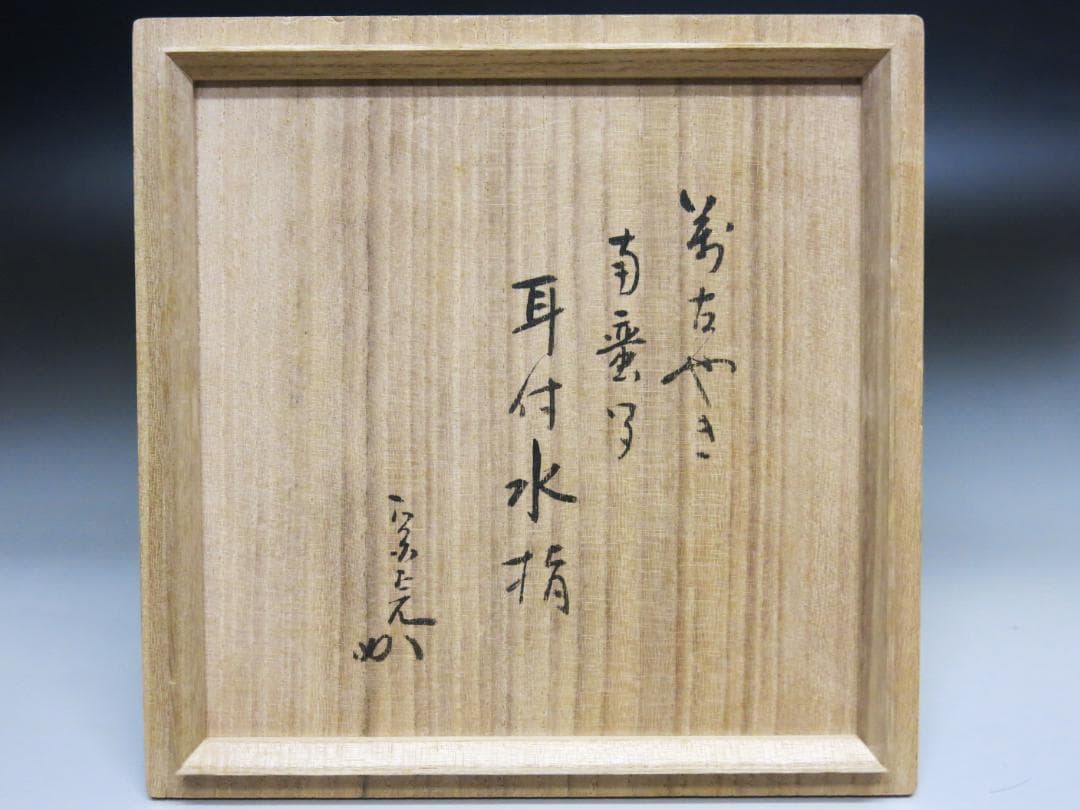 萬古やき
南蛮写
耳付水指